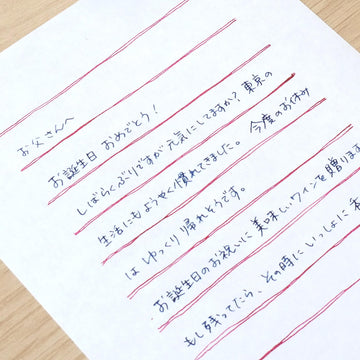 お父さんへ
お誕生日 おめでとう！
しばらくぶりですが元気にしてますか？東京の
生活にもようやく慣れてきました。 今度のお休み
は ゆっくり 帰れそうです。
お誕生日のお祝いに 美味しいワインを贈ります
もし残ってたら、その時に いっしょに